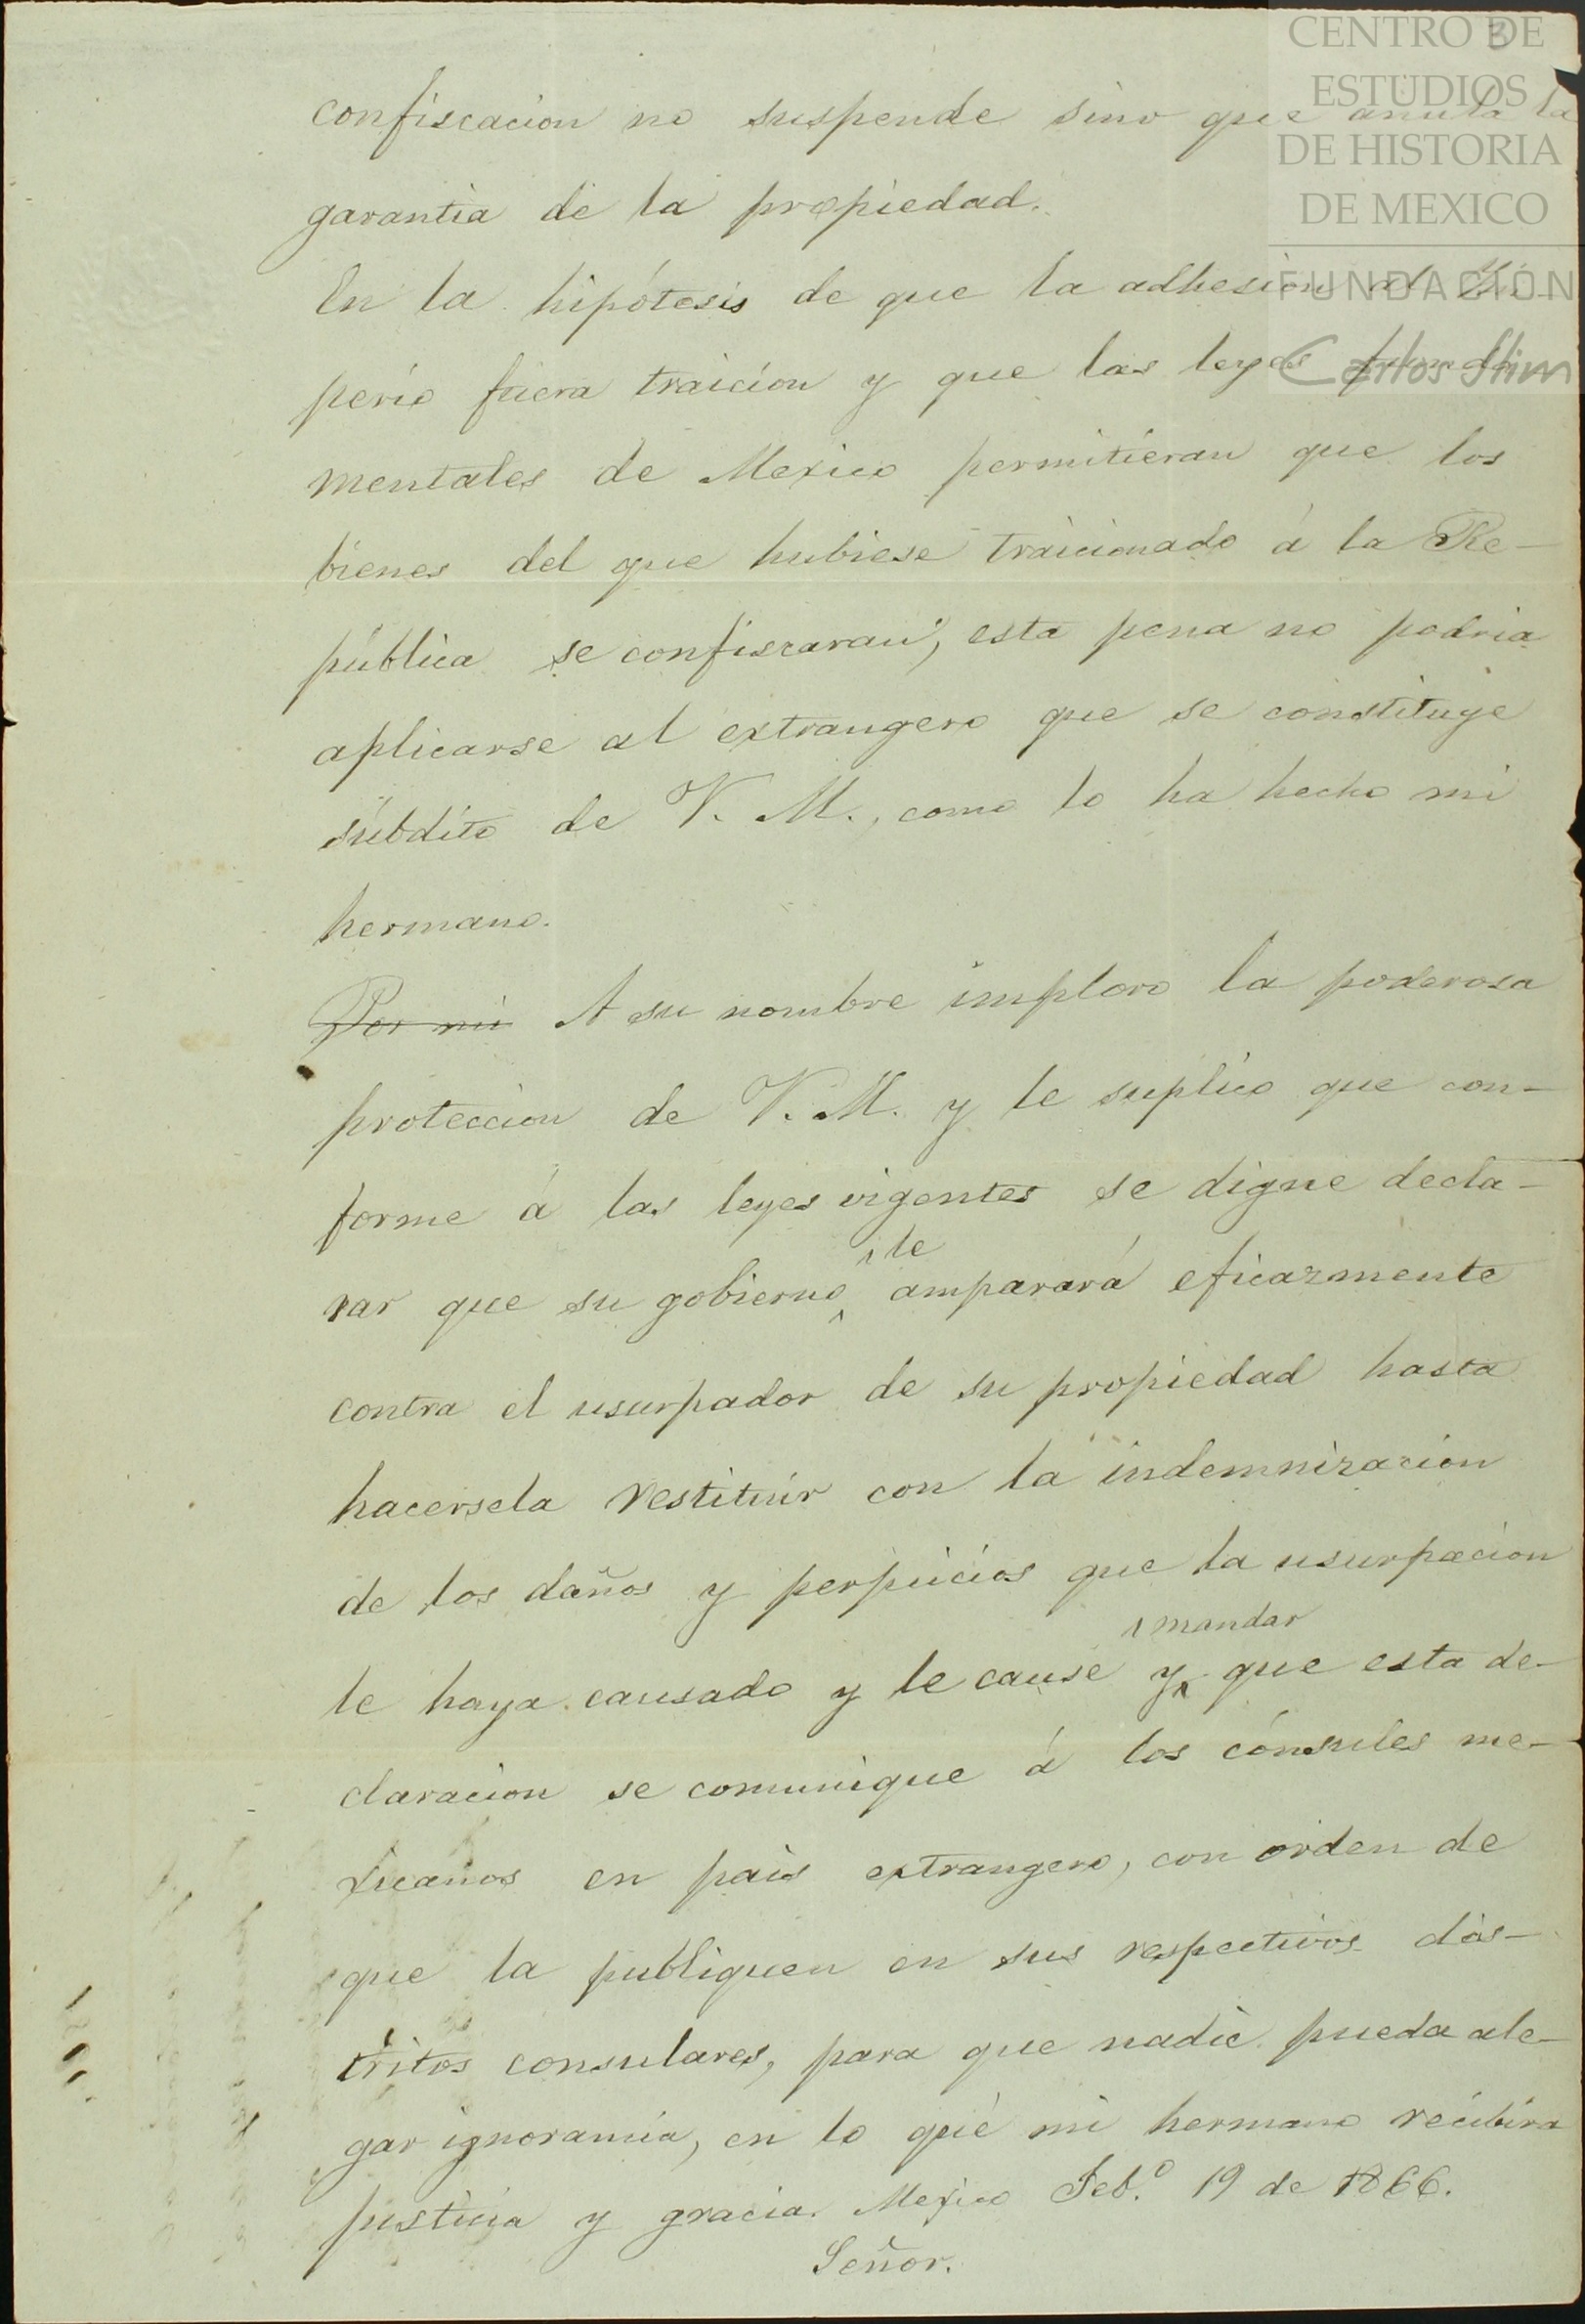 3
CENTRO DE
ESTUDIOS
DE HISTORIA
DE MEXICO
FUNDACIÓN
Carlos Slim
confiscacion no suspende sino que anula la
garantia de la propiedad.
En la hipótesis de que la adhesion al Im-
perio fuera traicion y que las leyes funda-
mentales de Mexico permitieran que los
bienes del que hubiese traicionado á la Re-
pública se confiscaran, esta pena no podria
aplicarse al extrangero que se constituye
súbdito de V. M., como lo ha hecho mi
hermano.
Por mi A su nombre imploro la poderosa
proteccion de V. M. y le suplico que con-
forme á las leyes vigentes se digne decla-
rar que su gobierno le amparará eficazmente
contra el usurpador de su propiedad hasta
hacersela restituir con la indemnizacion
de los daños y perjuicios que la usurpacion
le haya causado y le cause y mandar que esta de-
claracion se comunique á los cónsules me-
xicanos en pais extrangero, con orden de
que la publiquen en sus respectivos dis-
tritos consulares, para que nadie pueda ale-
gar ignorancia, en lo que mi hermano recibira
justicia y gracia. Mexico Feb.º 19 de 1866.
Señor.